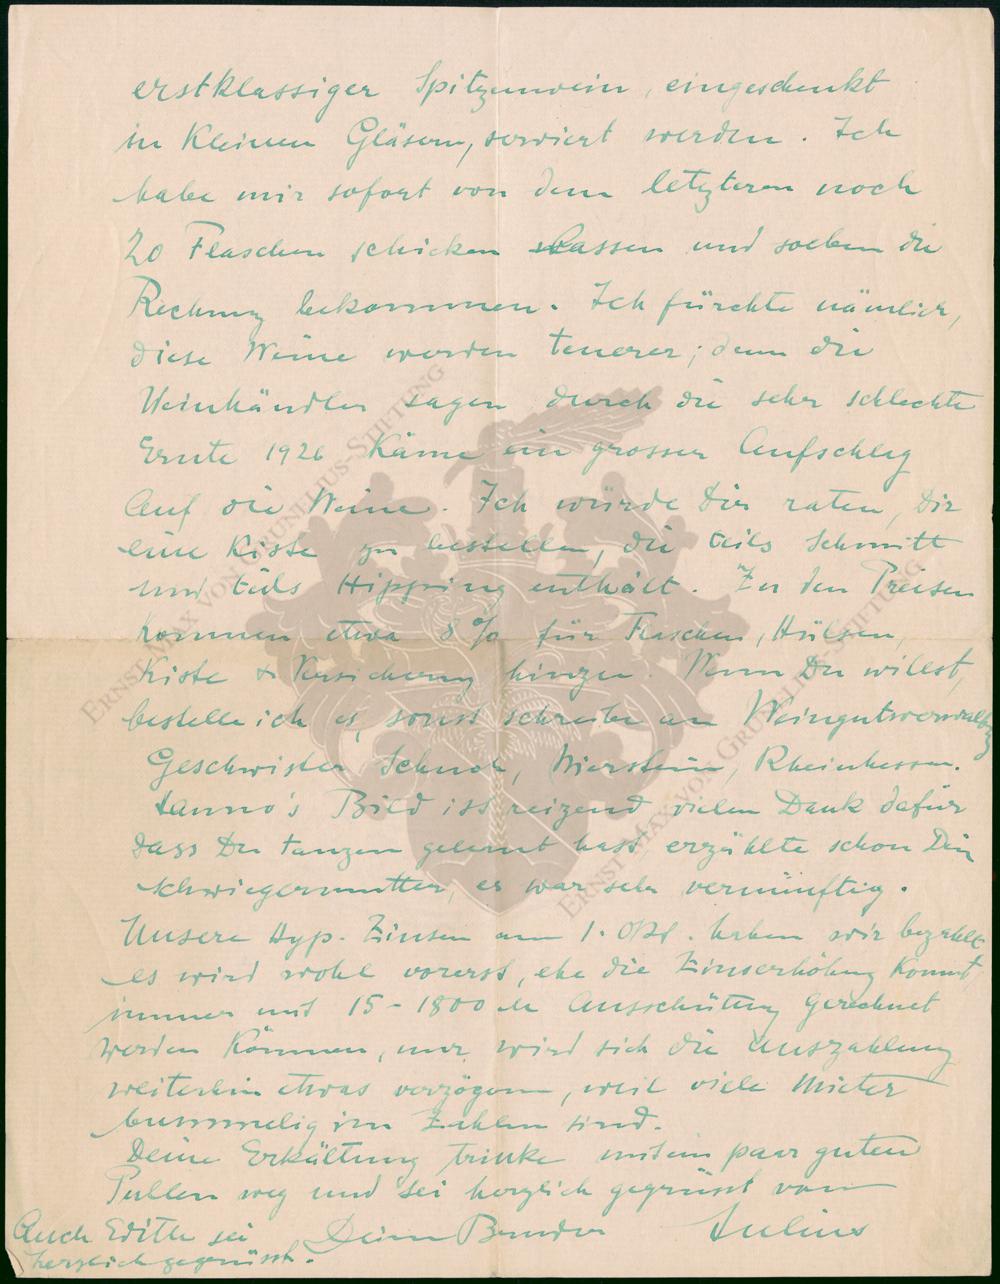 erstklassiger Spitzenwein, eingeschenkt
in kleinen Gläsern, serviert werden. Ich
habe mir sofort von dem letzteren noch
20 Flaschen schicken lassen und soeben die
Rechnung bekommen. Ich fürchte nämlich,
diese Weine werden teuerer; denn die
Weinhändler sagen durch die sehr schlechte
Ernte 1926 käme ein grosser Aufschlag
auf die Weine. Ich würde Dir raten, Dir
eine Kiste zu bestellen, die teils Schmitt
und teils Hipping enthält. Zu den Preisen
kommen etwa 8% für Flaschen, Hülsen,
Kiste & Versicherung hinzu. Wenn Du willst,
bestelle ich es, sonst schreibe an Weingutsverwaltg
Geschwister Schuch, Nierstein, Rheinhessen.
Hanno's Bild ist reizend vielen Dank dafür
dass Du tanzen gelernt hast erzählte schon Dein
Schwiegermutter, es war sehr vernünftig.
Unsere Hyp. Zinsen am 1. Okt. haben wir bezahlt
es wird wohl vorerst, ehe die Zinserhöhung kommt,
immer mit 15-1800 M Ausschüttung gerechnet
werden können, nur wird sich die Auszahlung
weiterhin etwas verzögern, weil viele Mieter
bummelig im Zahlen sind.
Deine Erkältung trinke mit ein paar guten
Pullen weg und sei herzlich gegrüsst von
Deinem Bruder Julius
Auch Edith sei
herzlich gegrüsst.
ERNST MAX VON GRUNELIUS-STIFTUNG
ERNST MAX VON GRUNELIUS-STIFTUNG